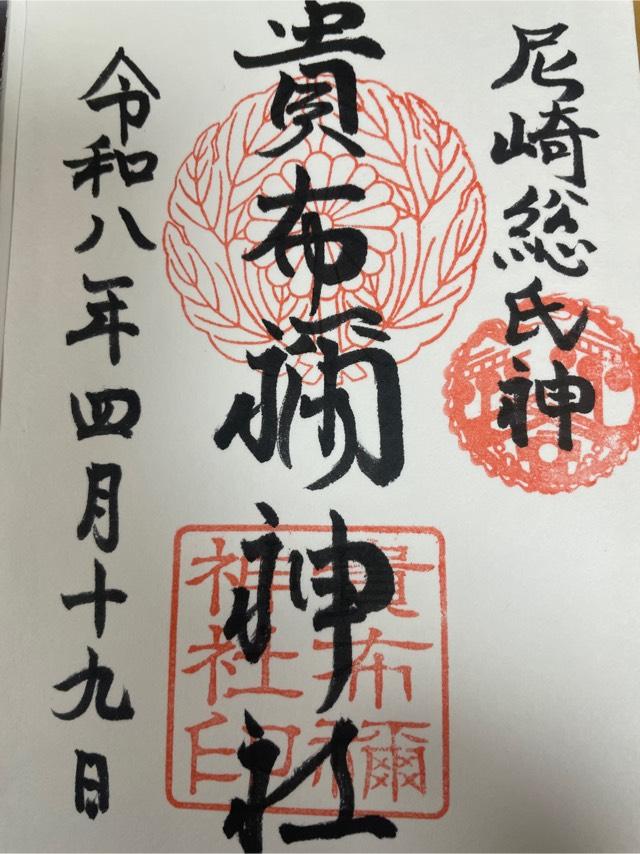 尼崎総氏神
貴布禰神社
貴布禰
神社印
令和八年四月十九日